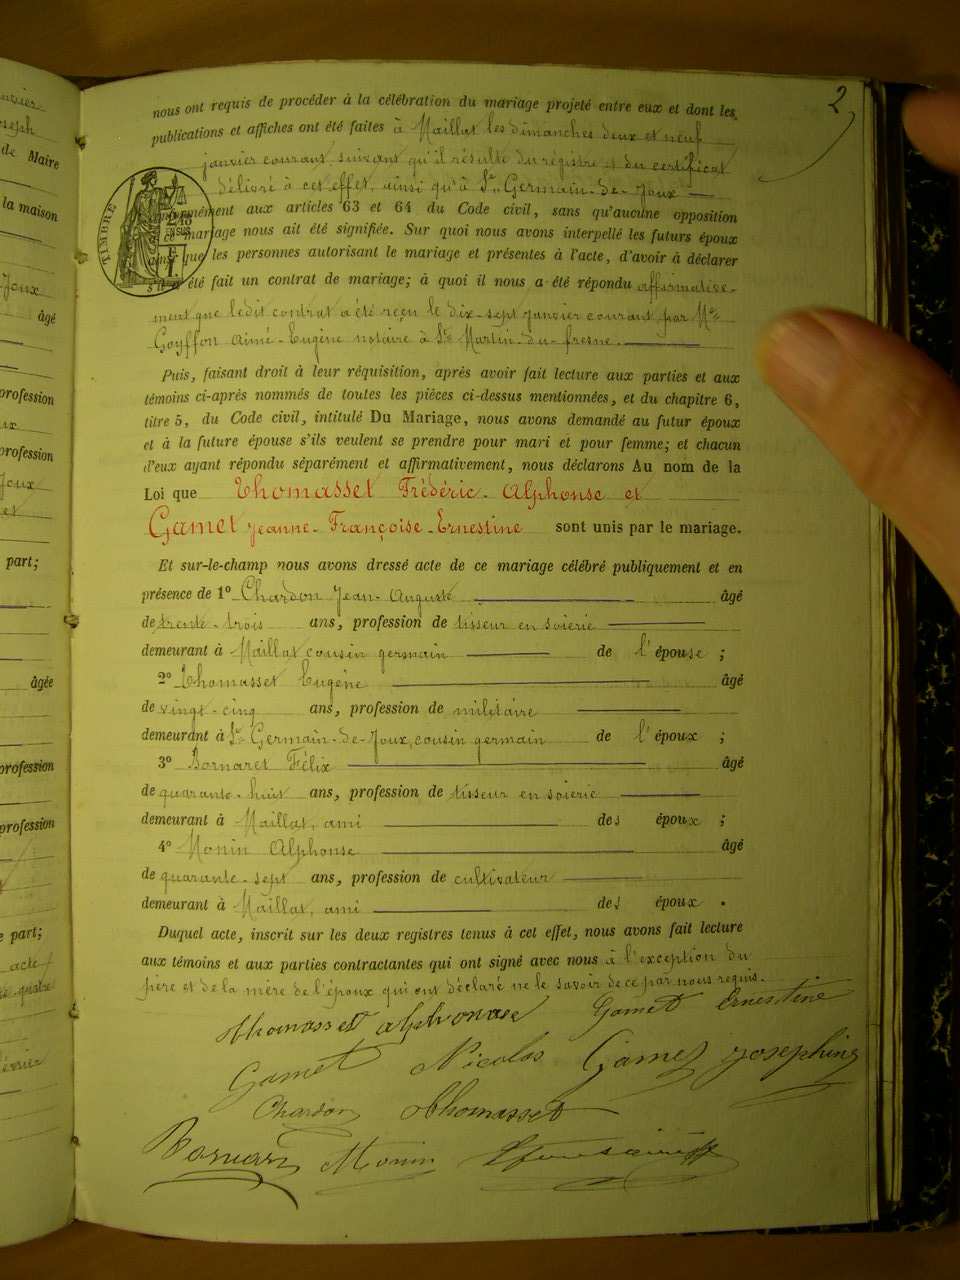 2
nous ont requis de procéder à la célébration du mariage projeté entre eux et dont les
publications et affiches ont été faites à Maillat les dimanches deux et neuf
janvier courant, suivant qu'il résulte du régistre et du certificat
délivré à cet effet, ainsi qu'à St Germain-de-Joux
conformément aux articles 63 et 64 du Code civil, sans qu'aucune opposition
à ce mariage nous ait été signifiée. Sur quoi nous avons interpellé les futurs époux
ainsi que les personnes autorisant le mariage et présentes à l'acte, d'avoir à déclarer
s'il a été fait un contrat de mariage; à quoi il nous a été répondu affirmative-
ment que ledit contrat a été reçu le dix-sept janvier courant par Me
Goyffon Aimé-Eugène notaire à St Martin-du-fresne.
Puis, faisant droit à leur réquisition, après avoir fait lecture aux parties et aux
témoins ci-après nommés de toutes les pièces ci-dessus mentionnées, et du chapitre 6,
titre 5, du Code civil, intitulé Du Mariage, nous avons demandé au futur époux
et à la future épouse s'ils veulent se prendre pour mari et pour femme; et chacun
d'eux ayant répondu séparément et affirmativement, nous déclarons Au nom de la
Loi que Thomasset Frédéric-Alphonse et
Gamet Jeanne-Françoise-Ernestine sont unis par le mariage.
Et sur-le-champ nous avons dressé acte de ce mariage célébré publiquement et en
présence de 1° Chardon Jean-Auguste âgé
de trente-trois ans, profession de tisseur en soierie
demeurant à Maillat cousin germain de l'épouse ;
2° Thomasset Eugène âgé
de vingt-cinq ans, profession de militaire
demeurant à St Germain-de-Joux, cousin germain de l'époux ;
3° Bornaret Félix âgé
de quarante-huit ans, profession de tisseur en soierie
demeurant à Maillat, ami des époux ;
4° Monin Alphonse âgé
de quarante-sept ans, profession de cultivateur
demeurant à Maillat, ami des époux .
Duquel acte, inscrit sur les deux registres tenus à cet effet, nous avons fait lecture
aux témoins et aux parties contractantes qui ont signé avec nous à l'exception du
père et de la mère de l'époux qui ont déclaré ne le savoir de ce par nous requis.
Thomasset alphonse Gamet Ernestine
Gamet Nicolas Gamet Josephine
Chardon Thomasset
Monin
TIMBRE
de Maire
la maison
Joux
âgé
profession
profession
Joux
part;
âgée
profession
profession
e part;
acte